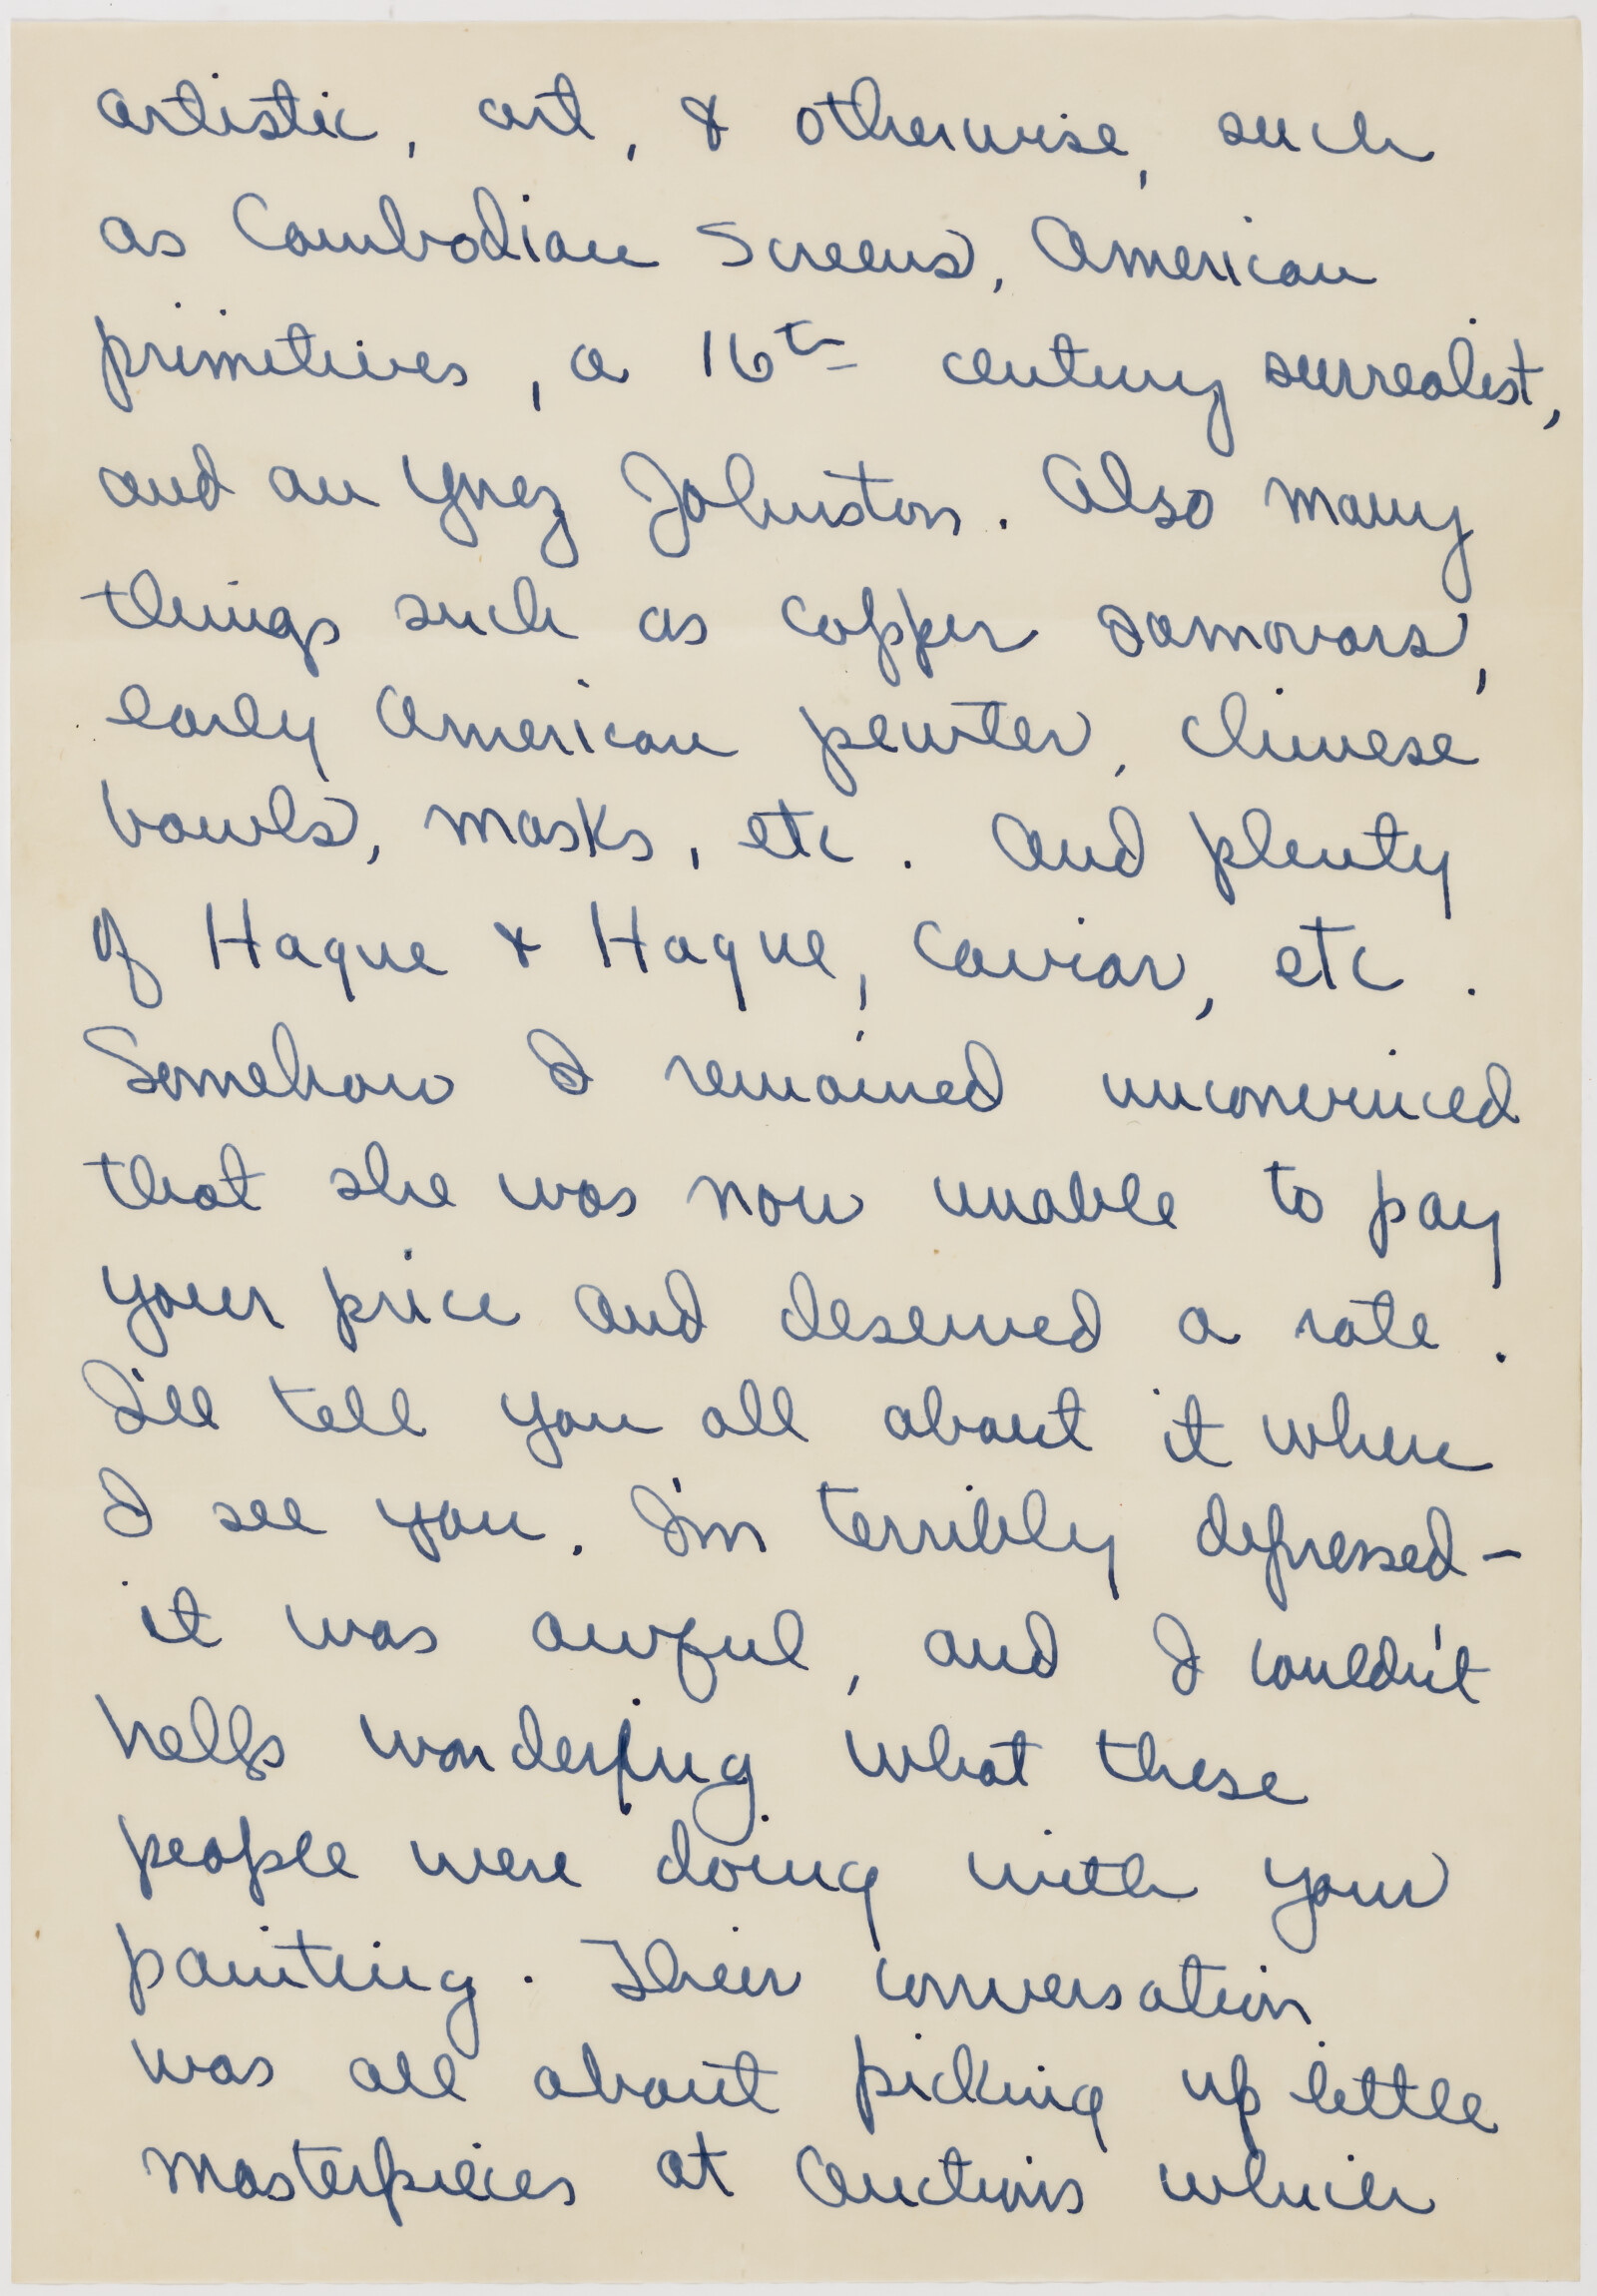 artistic, art, & otherwise, such
as Cambodian Screens, American
primitives, a 16th century surrealist,
and an Ynez Johnston. Also many
things such as copper samovars,
early American pewter, chinese
bowls, masks, etc. And plenty
of Hague & Hague, Caviar, etc.
Somehow I remained unconvinced
that she was now unable to pay
your price and deserved a rate.
I'll tell you all about it when
I see you. I'm terribly depressed -
it was awful, and I couldn't
help wondering what these
people were doing with your
painting. Their conversation
was all about picking up little
masterpieces at Auctions which